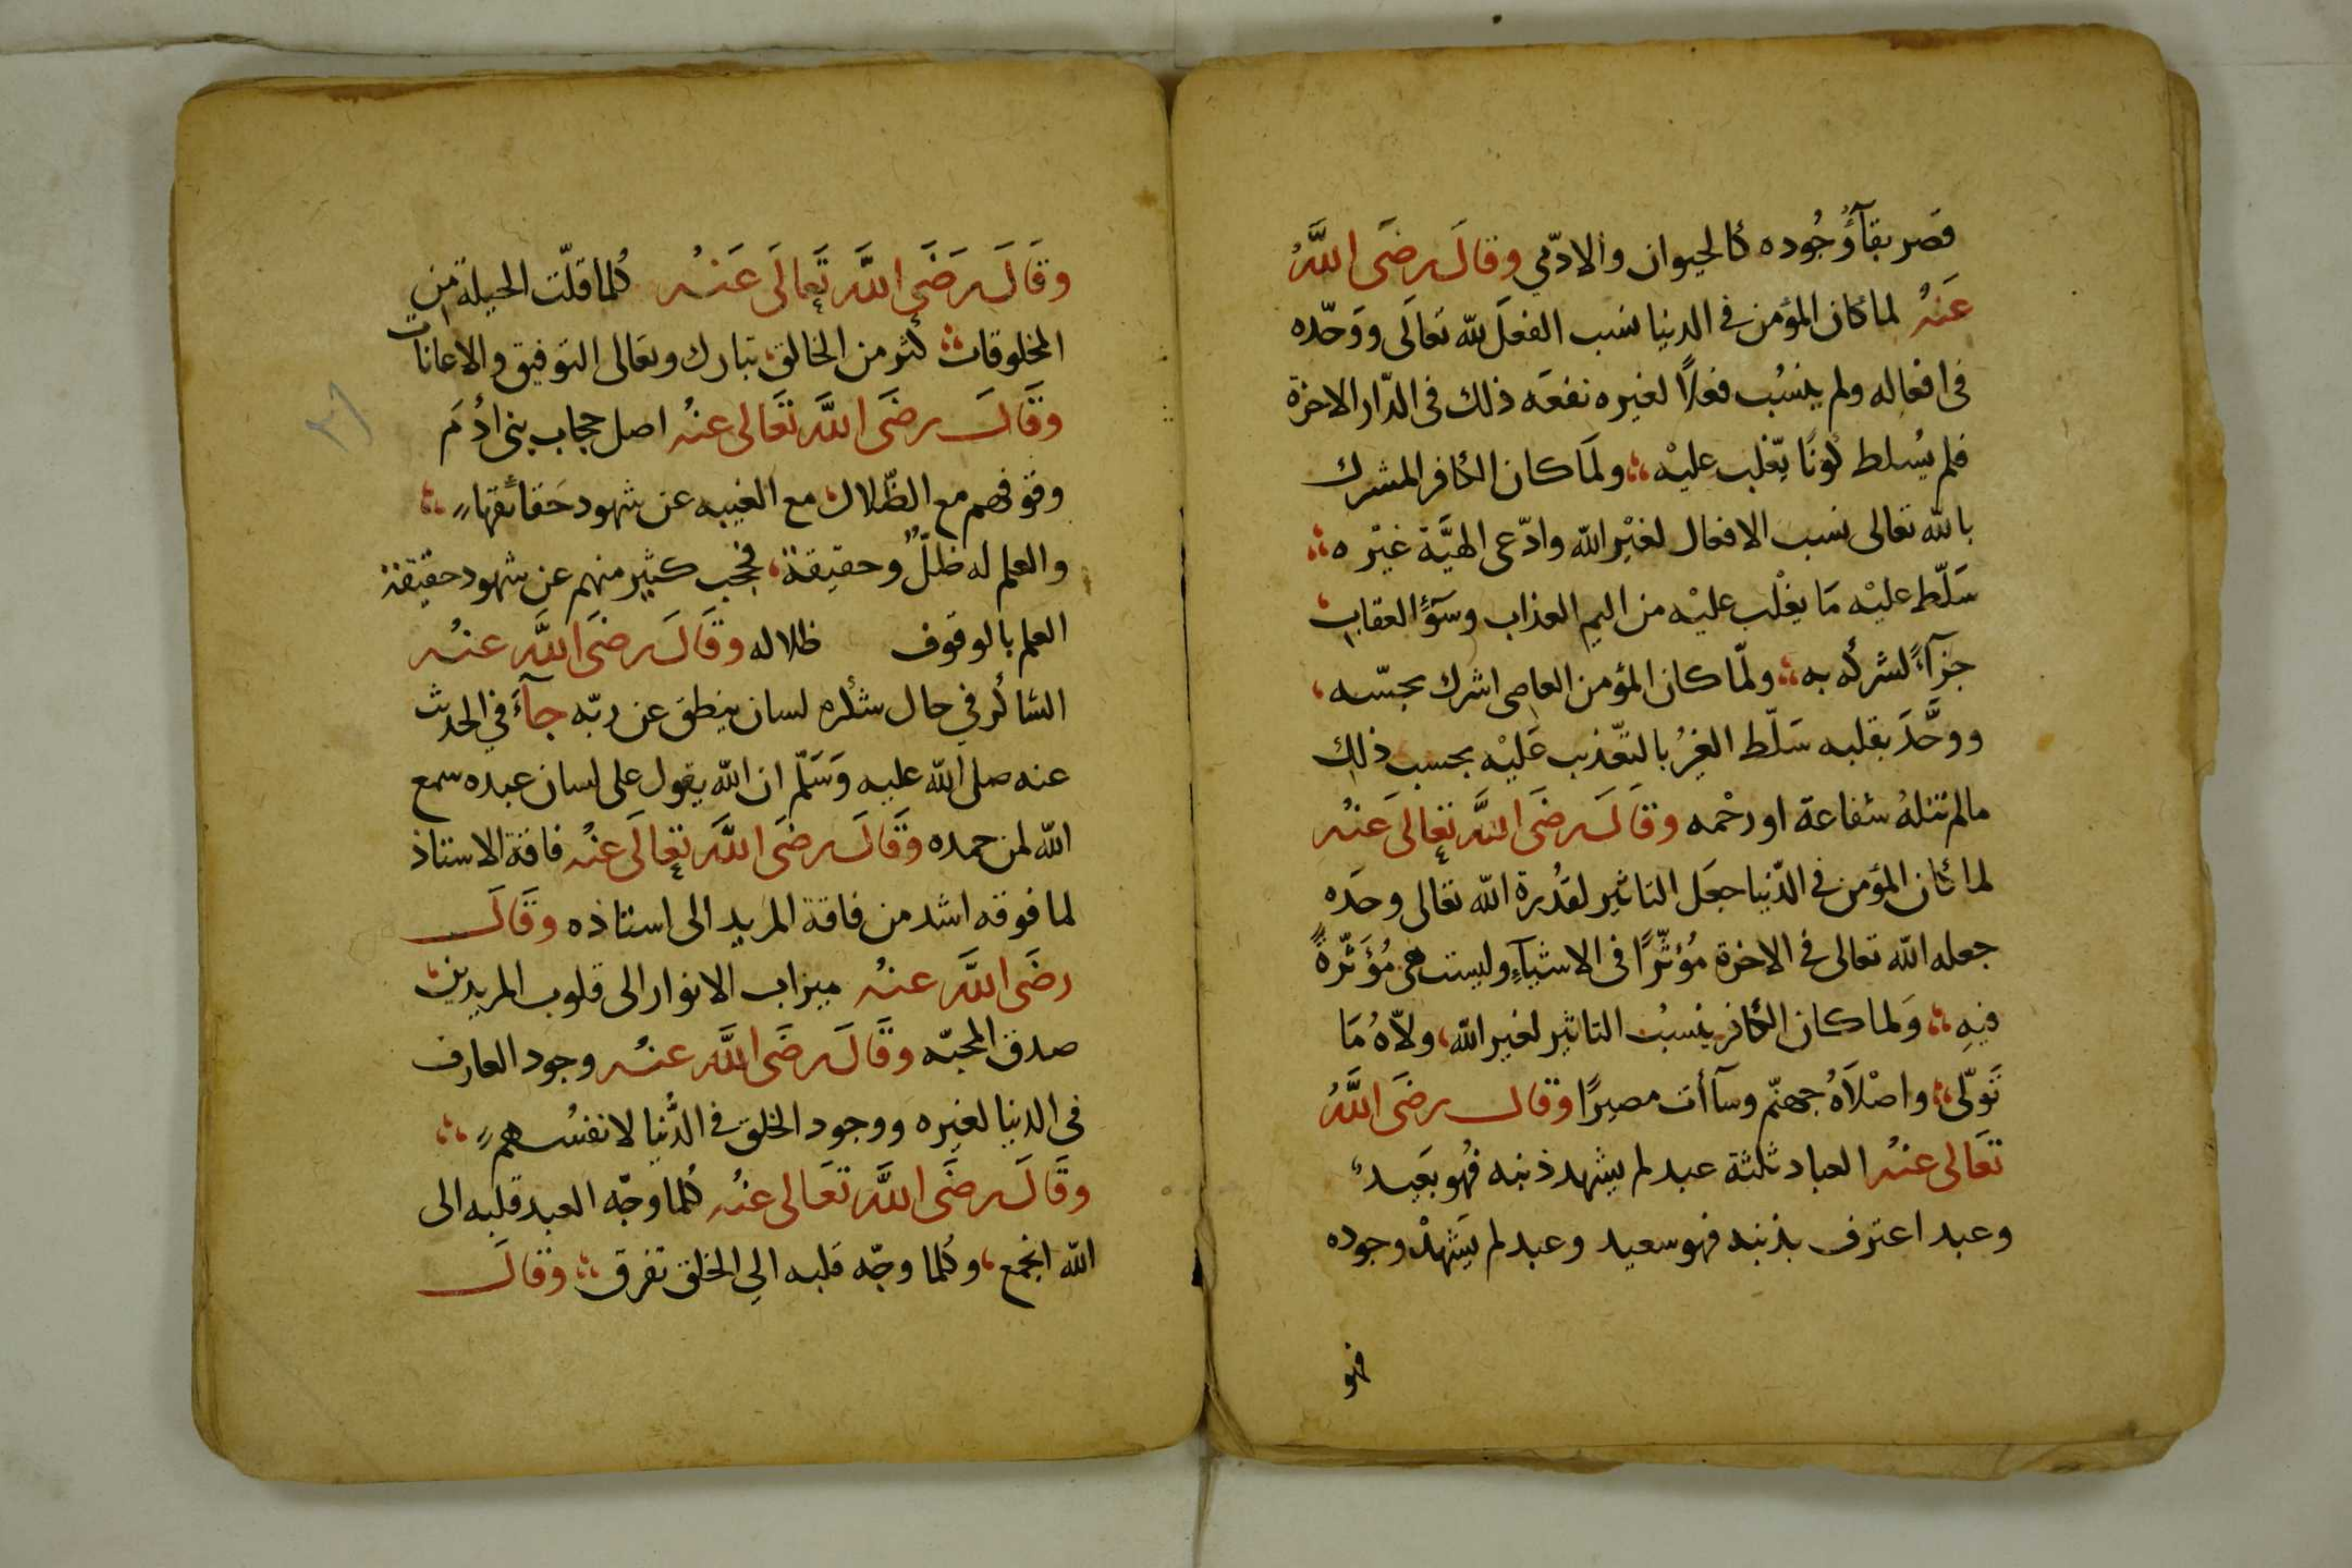 قصر بقآؤُ وجُوده كالحيوان والادّمي وقالَ رضَى اللَّهُ
عَنهُ لما كان المؤمن في الدنيا نسب الفعلَ لله تعالَى ووَحّده
فى افعاله ولم ينسُب فعلاً لغيره نفعَه ذلك فى الدّار الاخرة
فلم يُسلط كونًا يّغلب عليْه ولَما كان الكافر المشرك
بالله تعالى نسب الافعال لغيْر الله وادّعى الهيَّة غيْره
سَلّط عليْه مَا يغْلب عليْه من اليم العذاب وسَوْءًالعقاب
جزآءً لشركه به ولمّا كان المؤمن العاصى اشرك بحسّه
ووحَّدَ بقلبه سَلّط الغيرُ بالتعّذيب عَليْه بحسب ذلك
مالم تنلهُ شفاعة او رحْمه وقالَ رضَى اللَّه تعالَى عَنْه
لما كان المؤمن في الدّنيا جعَل التاثير لقدُرة الله تعالى وحَده
جعله الله تعالى فى الاخرة مُؤثّرًا فى الاشيآءِ وليست هى مُؤَثّرةً
فيهِ وَلما كان الكافر ينسبُ التاثير لغير الله ولاّهُ مَا
تَولّى واصْلاَهُ جهنّم وسآأت مصيرًا وقال رضَى اللَّهُ
تعَالى عنهُ العباد ثلثة عبد لم يشهد ذنبه فهُو بعَيدٌ
وعبد اعترف بذنبه فهو سعيد وعبد لم يَشهدْ وجوده
فهو
وقَالَ رَضَى اللَّه تَعالَى عَنهُ كُلما قلّت الحيلة من
المخلوقات كثر من الخالق تبارك وتعالى التوفيق والاعانات
وقَالَ رضَى اللَّه تعَالى عنهُ اصل حجاب بنى ادُمَ
وقوفهم مع الظّلال مع الغيبه عن شهود حَقائقها
والعلم له ظلٌّ وحقيقة فحجب كثير منهم عن شهود حقيقة
العلم بالوقوف ظلاله وقَالَ رضَى اللَّه عنهُ
الشاكر في حال شكره لسان ينطق عن ربّه جآءَ في الحديث
عنه صلى الله عليه وَسَلّم ان الله يقول على لسان عبده سمع
الله لمن حمده وقَالَ رضَى اللَّه تعالَى عنْهُ فاقة الاستاذ
لما فوقه اشد من فاقة المريد الى استاذه وقَالَ
رضَى اللَّه عنهُ ميزاب الانوار الى قلوب المريدين
صدق المحبّه وقَالَ رضَى اللَّه عنهُ وجود العارف
في الدنيا لغيره ووجود الخلق فى الدُّنيا لانفسُهم
وقَالَ رضَى اللَّه تعَالى عنْهُ كُلما وجّه العبد قلبه الى
الله انجمع وكُلما وجّه قلبه الي الخلق تفرق وقالَ